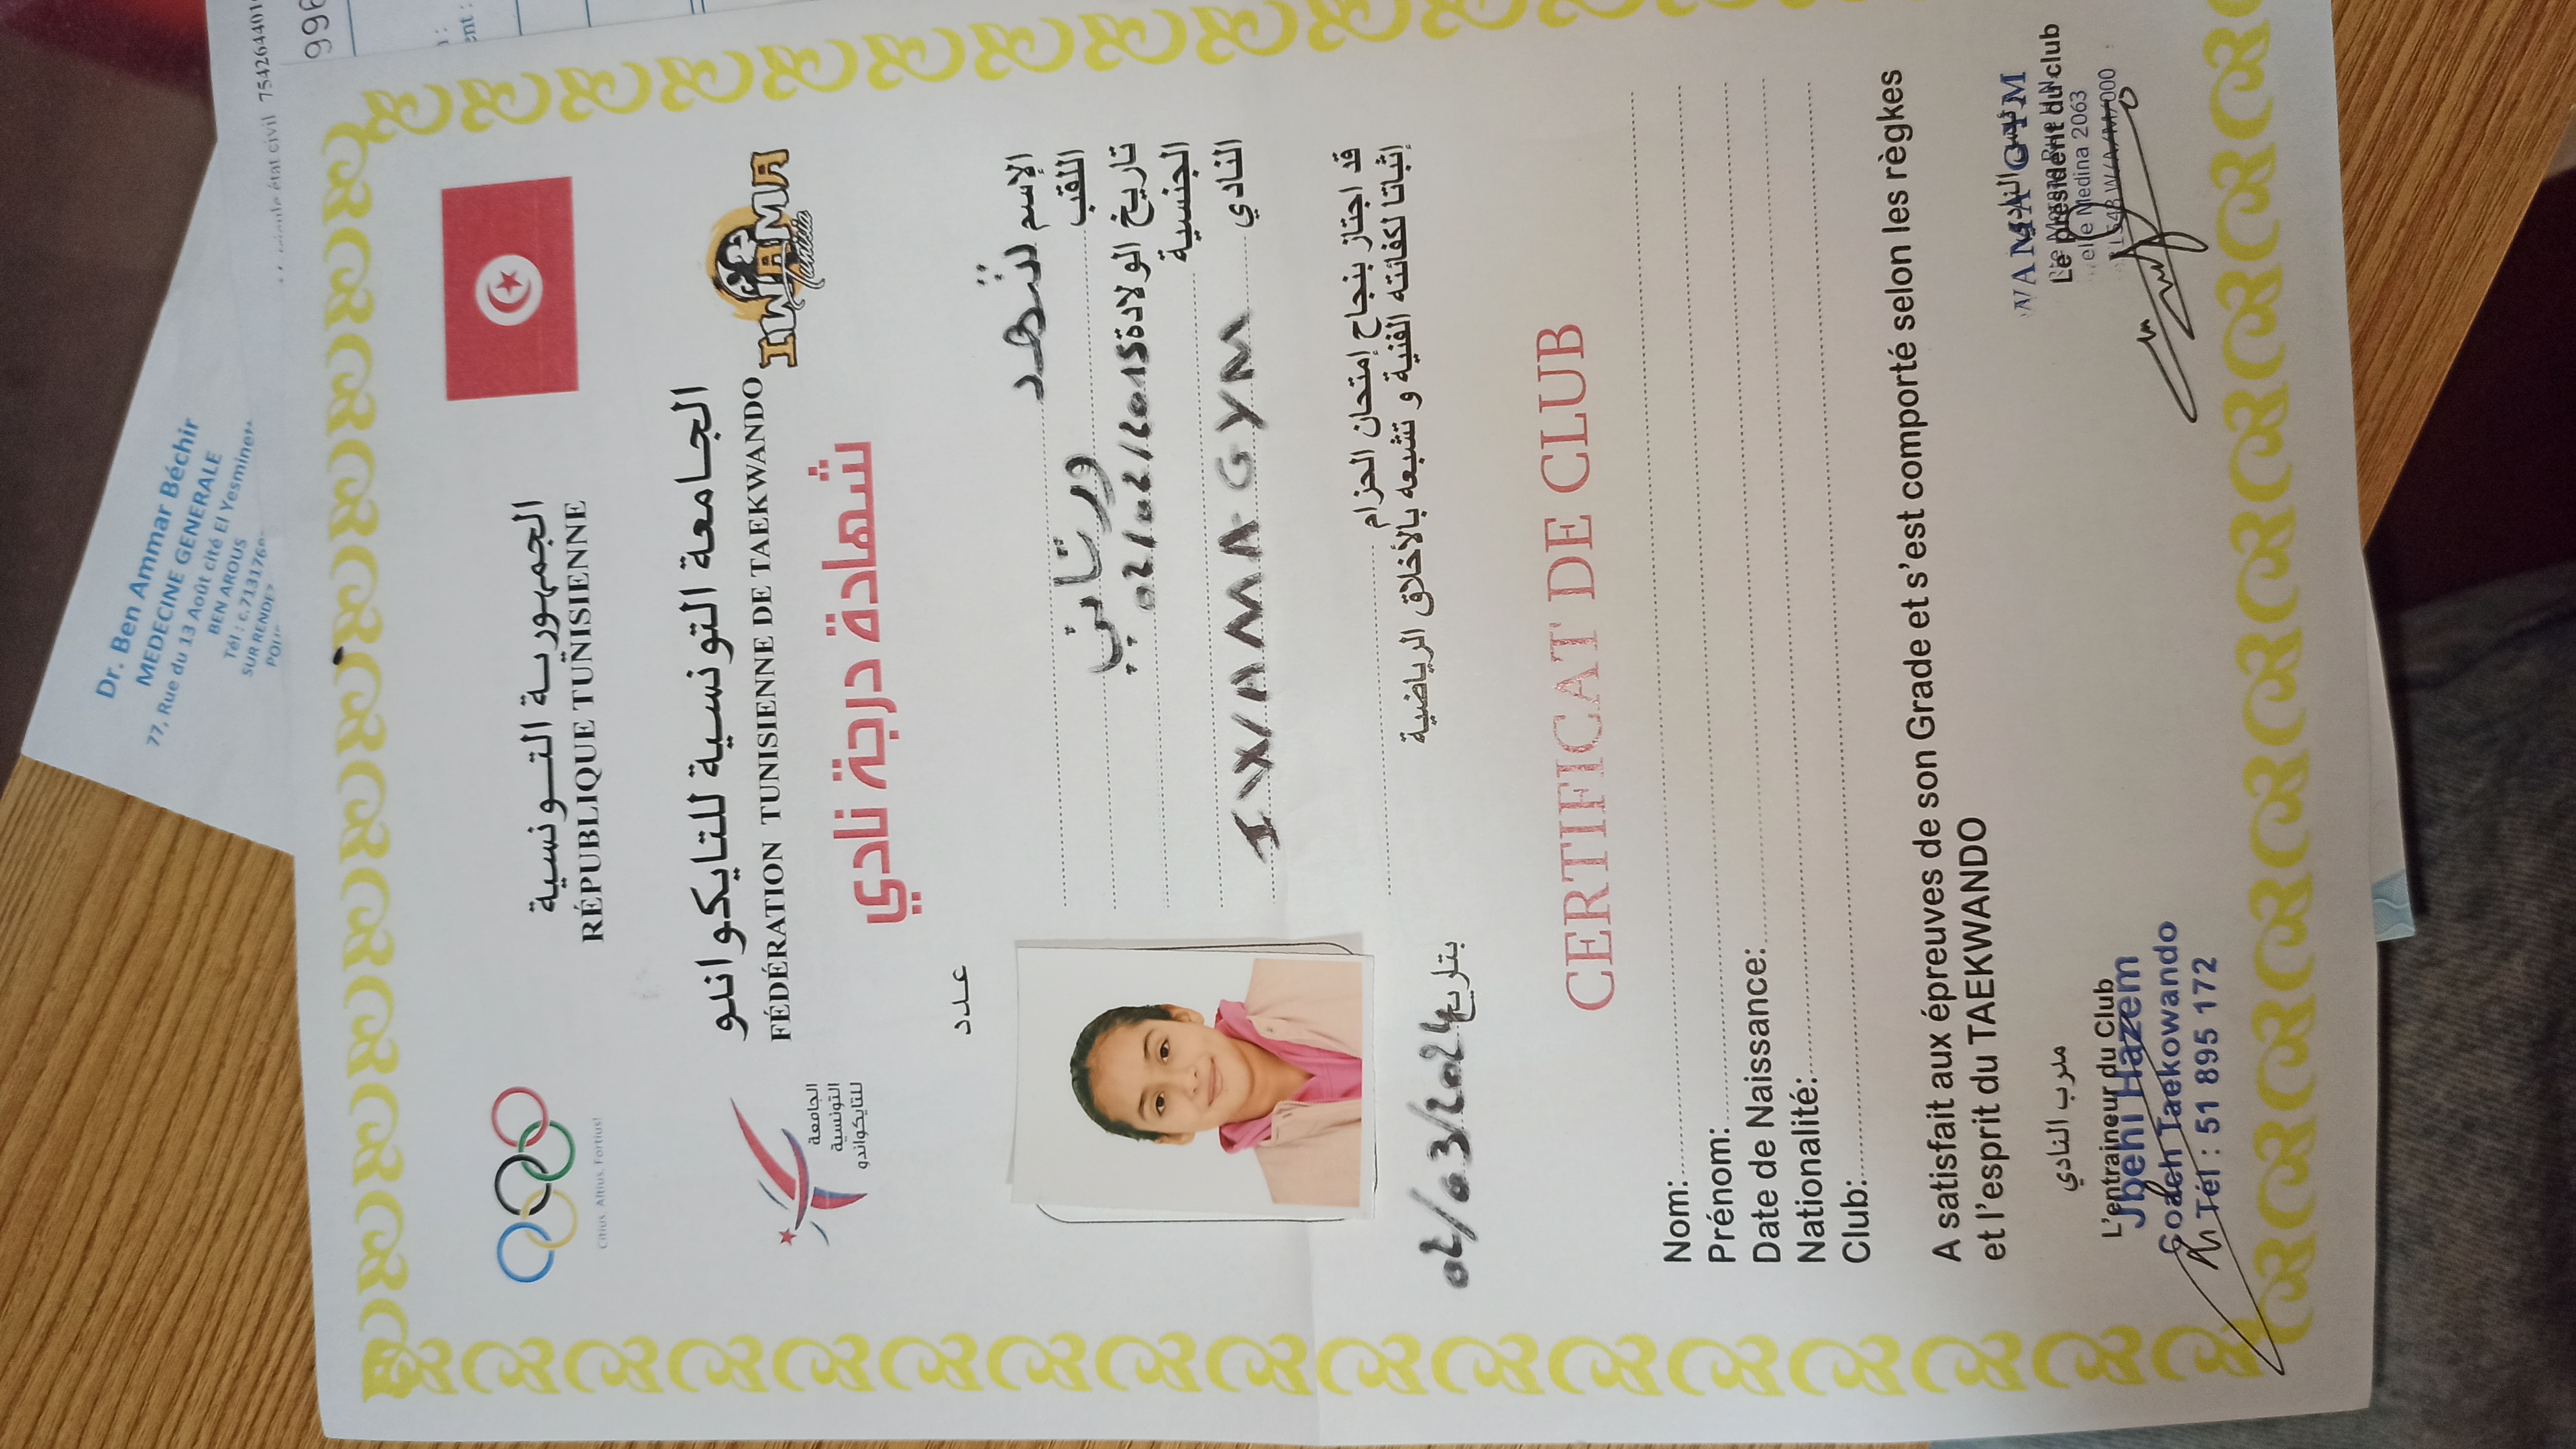 Dr. Ben Ammar Béchir
MEDECINE GENERALE
77, Rue du 13 Août cité El Yesmine
BEN AROUS
SUR RENDE
état civil 754264401
996
الجمهورية التونسية
RÉPUBLIQUE TUNISIENNE
Citius, Altius, Fortius!
الجامعة التونسية للتايكواندو
FÉDÉRATION TUNISIENNE DE TAEKWANDO
IWAMA
الجامعة
التونسية
للتايكواندو
شهادة درجة نادي
عدد
الإسم
اللقب ورتاني
تاريخ الولادة 02/02/2015
الجنسية
النادي IWAMA GYM
قد اجتاز بنجاح إمتحان الحزام
إثباتا لكفائته الفنية و تشبعه بالأخلاق الرياضية
بتاريخ 02/03/2024
CERTIFICAT DE CLUB
Nom:
Prénom:
Date de Naissance:
Nationalité:
Club:
A satisfait aux épreuves de son Grade et s'est comporté selon les règkes
et l'esprit du TAEKWANDO
مدرب النادي
L'entraineur du Club
Jbehi Hazem
Coach Taekowando
Tél : 51 895 172
WAMA GYM
Le président du club
Medina 2063